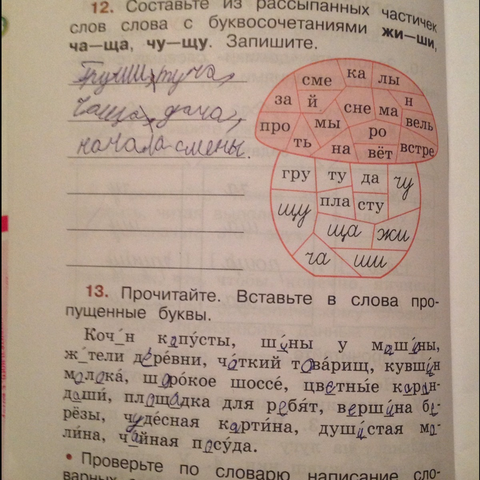 12. Составьте из рассыпанных частичек
слов слова с буквосочетаниями жи—ши,
ча—ща, чу—щу. Запишите.
Груши, туча,
Чаща, дача,
начала смены.
сме ка лы
за й сне ма н
про мы ро вель
ть на вёт встре
гру ту да чу
щу пла сту
ща жи
ча ши
13. Прочитайте. Вставьте в слова про-
пущенные буквы.
Коч_н капусты, шины у машины,
ж_тели деревни, чаткий товарищ, кувшин
молока, широкое шоссе, цветные каран-
даши, площадка для ребят, вершина бе-
рёзы, чудесная картина, душистая ма-
лина, чайная посуда.
• Проверьте по словарю написание сло-